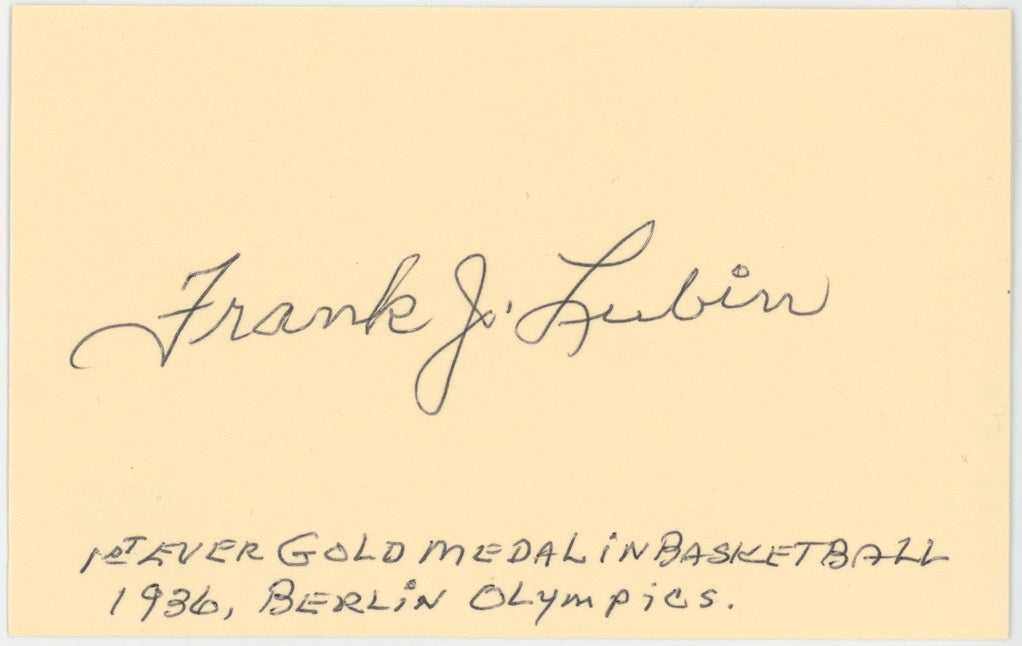 Frank J. Lubin
1ST EVER GOLD MEDAL iN BASKETBALL
1936, BERLiN OLympics.